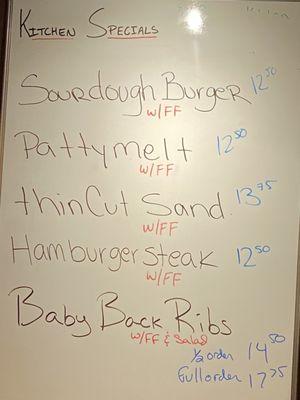 Kitchen Specials
Sourdough Burger 12 50
w/FF
Patty melt 12 50
w/FF
thin Cut Sand. 13 75
w/FF
Hamburger steak 12 50
w/FF
Baby Back Ribs
w/FF & Salad
1/2 order 14 50
Full order 17 75